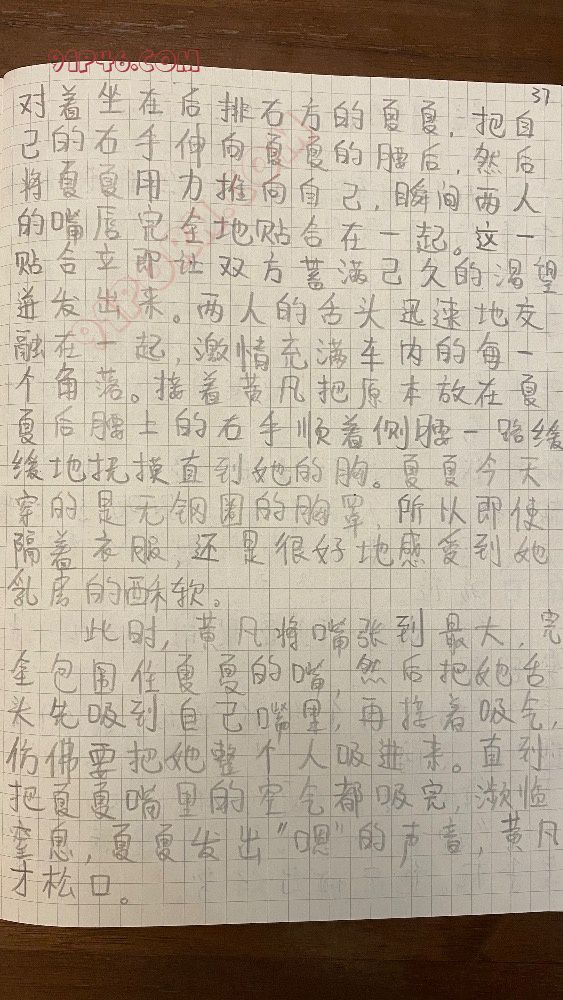 91P46.COM
37
对着坐在后排右方的夏夏，把自
己的右手伸向夏夏的腰后，然后
将夏夏用力推向自己，瞬间两人
的嘴唇完全地贴合在一起。这一
贴合立即让双方蓄满已久的渴望
迸发出来。两人的舌头迅速地交
融在一起，激情充满车内的每一
个角落。接着黄凡把原本放在夏
夏后腰上的右手顺着侧腰一路缓
缓地抚摸直到她的胸。夏夏今天
穿的是无钢圈的胸罩，所以即使
隔着衣服，还是很好地感受到她
乳房的酥软。
此时，黄凡将嘴张到最大，完
全包围住夏夏的嘴，然后把她舌
头先吸到自己嘴里，再接着吸气，
仿佛要把她整个人吸进来。直到
把夏夏嘴里的空气都吸完，濒临
窒息，夏夏发出“嗯”的声音，黄凡
才松口。